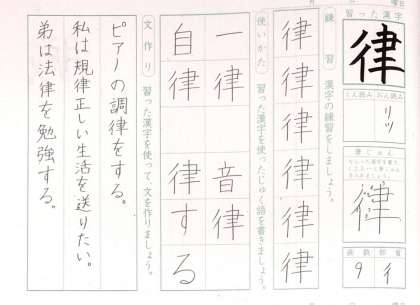 月 日 曜日
習った漢字
律
くん読み おん読み
リツ
書じゅん
律
画数 部首
9 彳
練習 漢字の練習をしましょう。
律
律
律
律
律
律
使いかた 習った漢字を使ったじゅく語を書きましょう。
一律 音律
自律 律する
文作り 習った漢字を使って文を作りましょう。
ピアノの調律をする。
私は規律正しい生活を送りたい。
弟は法律を勉強する。